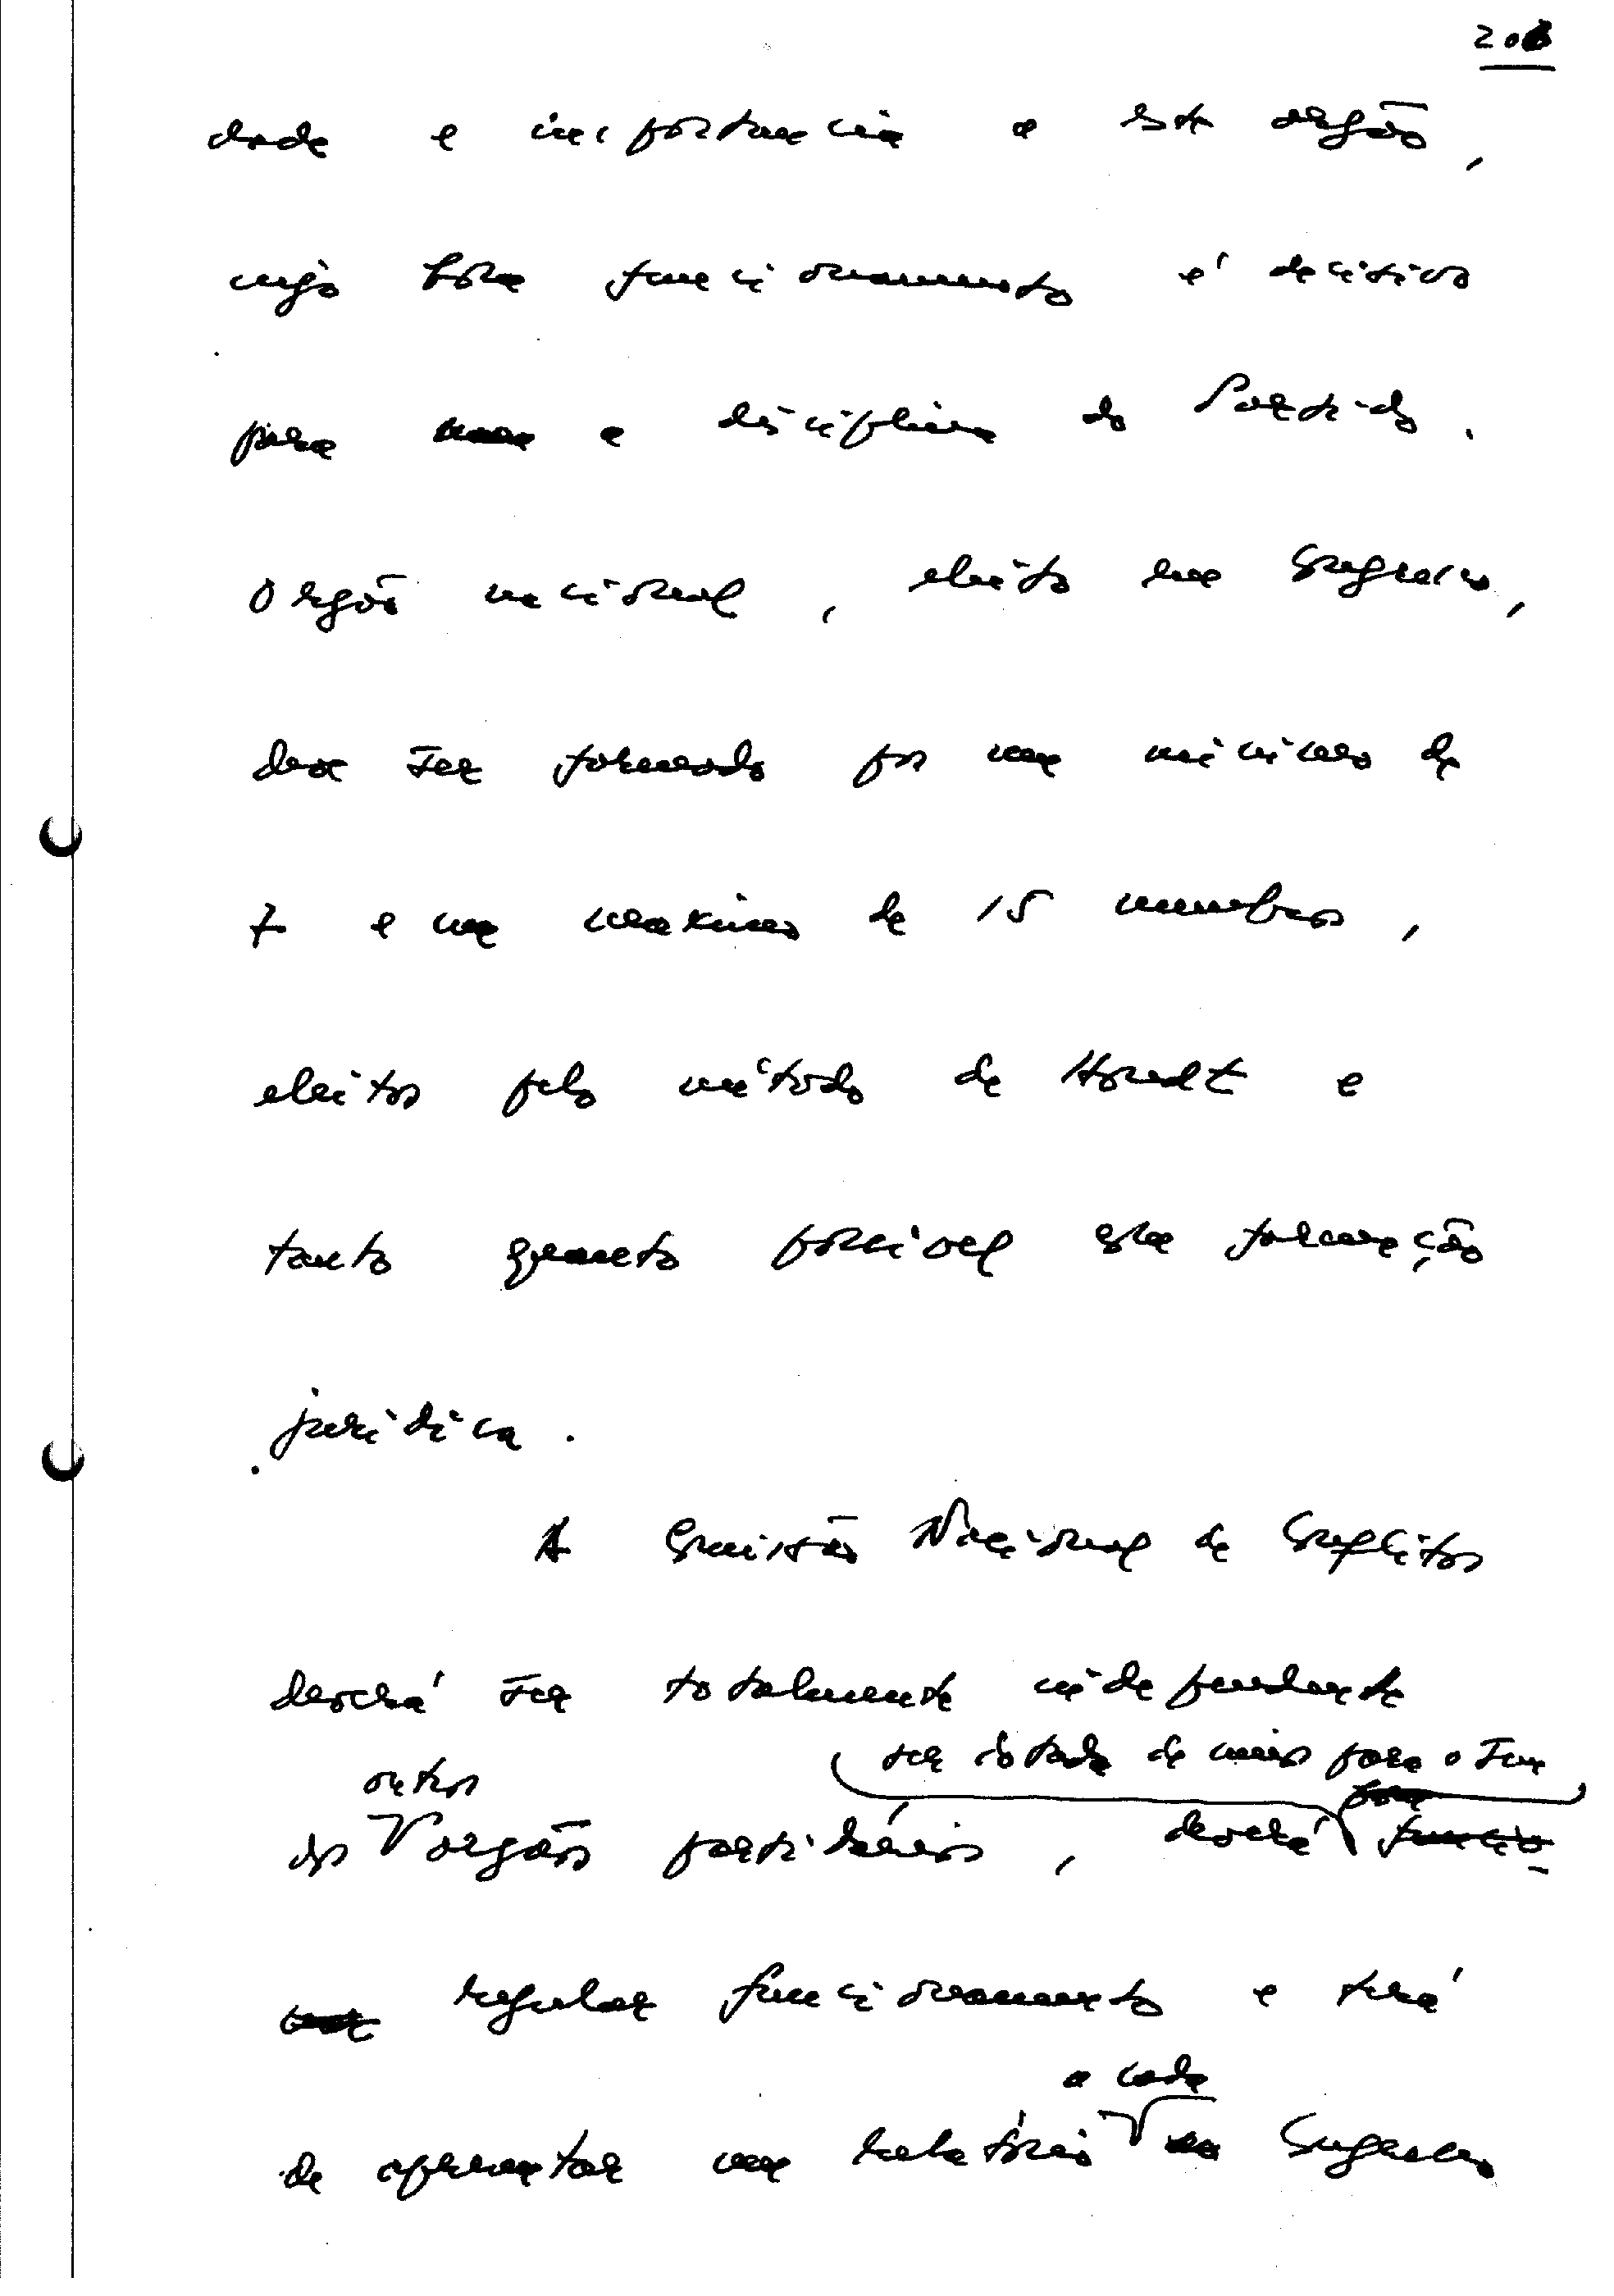 dade e importancia a este orgão,
cujo bom funcionamento é decisivo
para a disciplina do Partido.
Orgão nacional, eleito em Congresso,
deve ser formado por um minimo de
7 e um maximo de 15 membros,
eleitos pelo método de Hondt e
tanto quanto possivel com formação
juridica.
A Comissão Nacional de Conflitos
deverá ser totalmente independente
ser dotada de meios para o seu
outros
dos orgãos partidários, deverá funcio-
regular funcionamento e terá
a cada
de apresentar um relatório Congresso